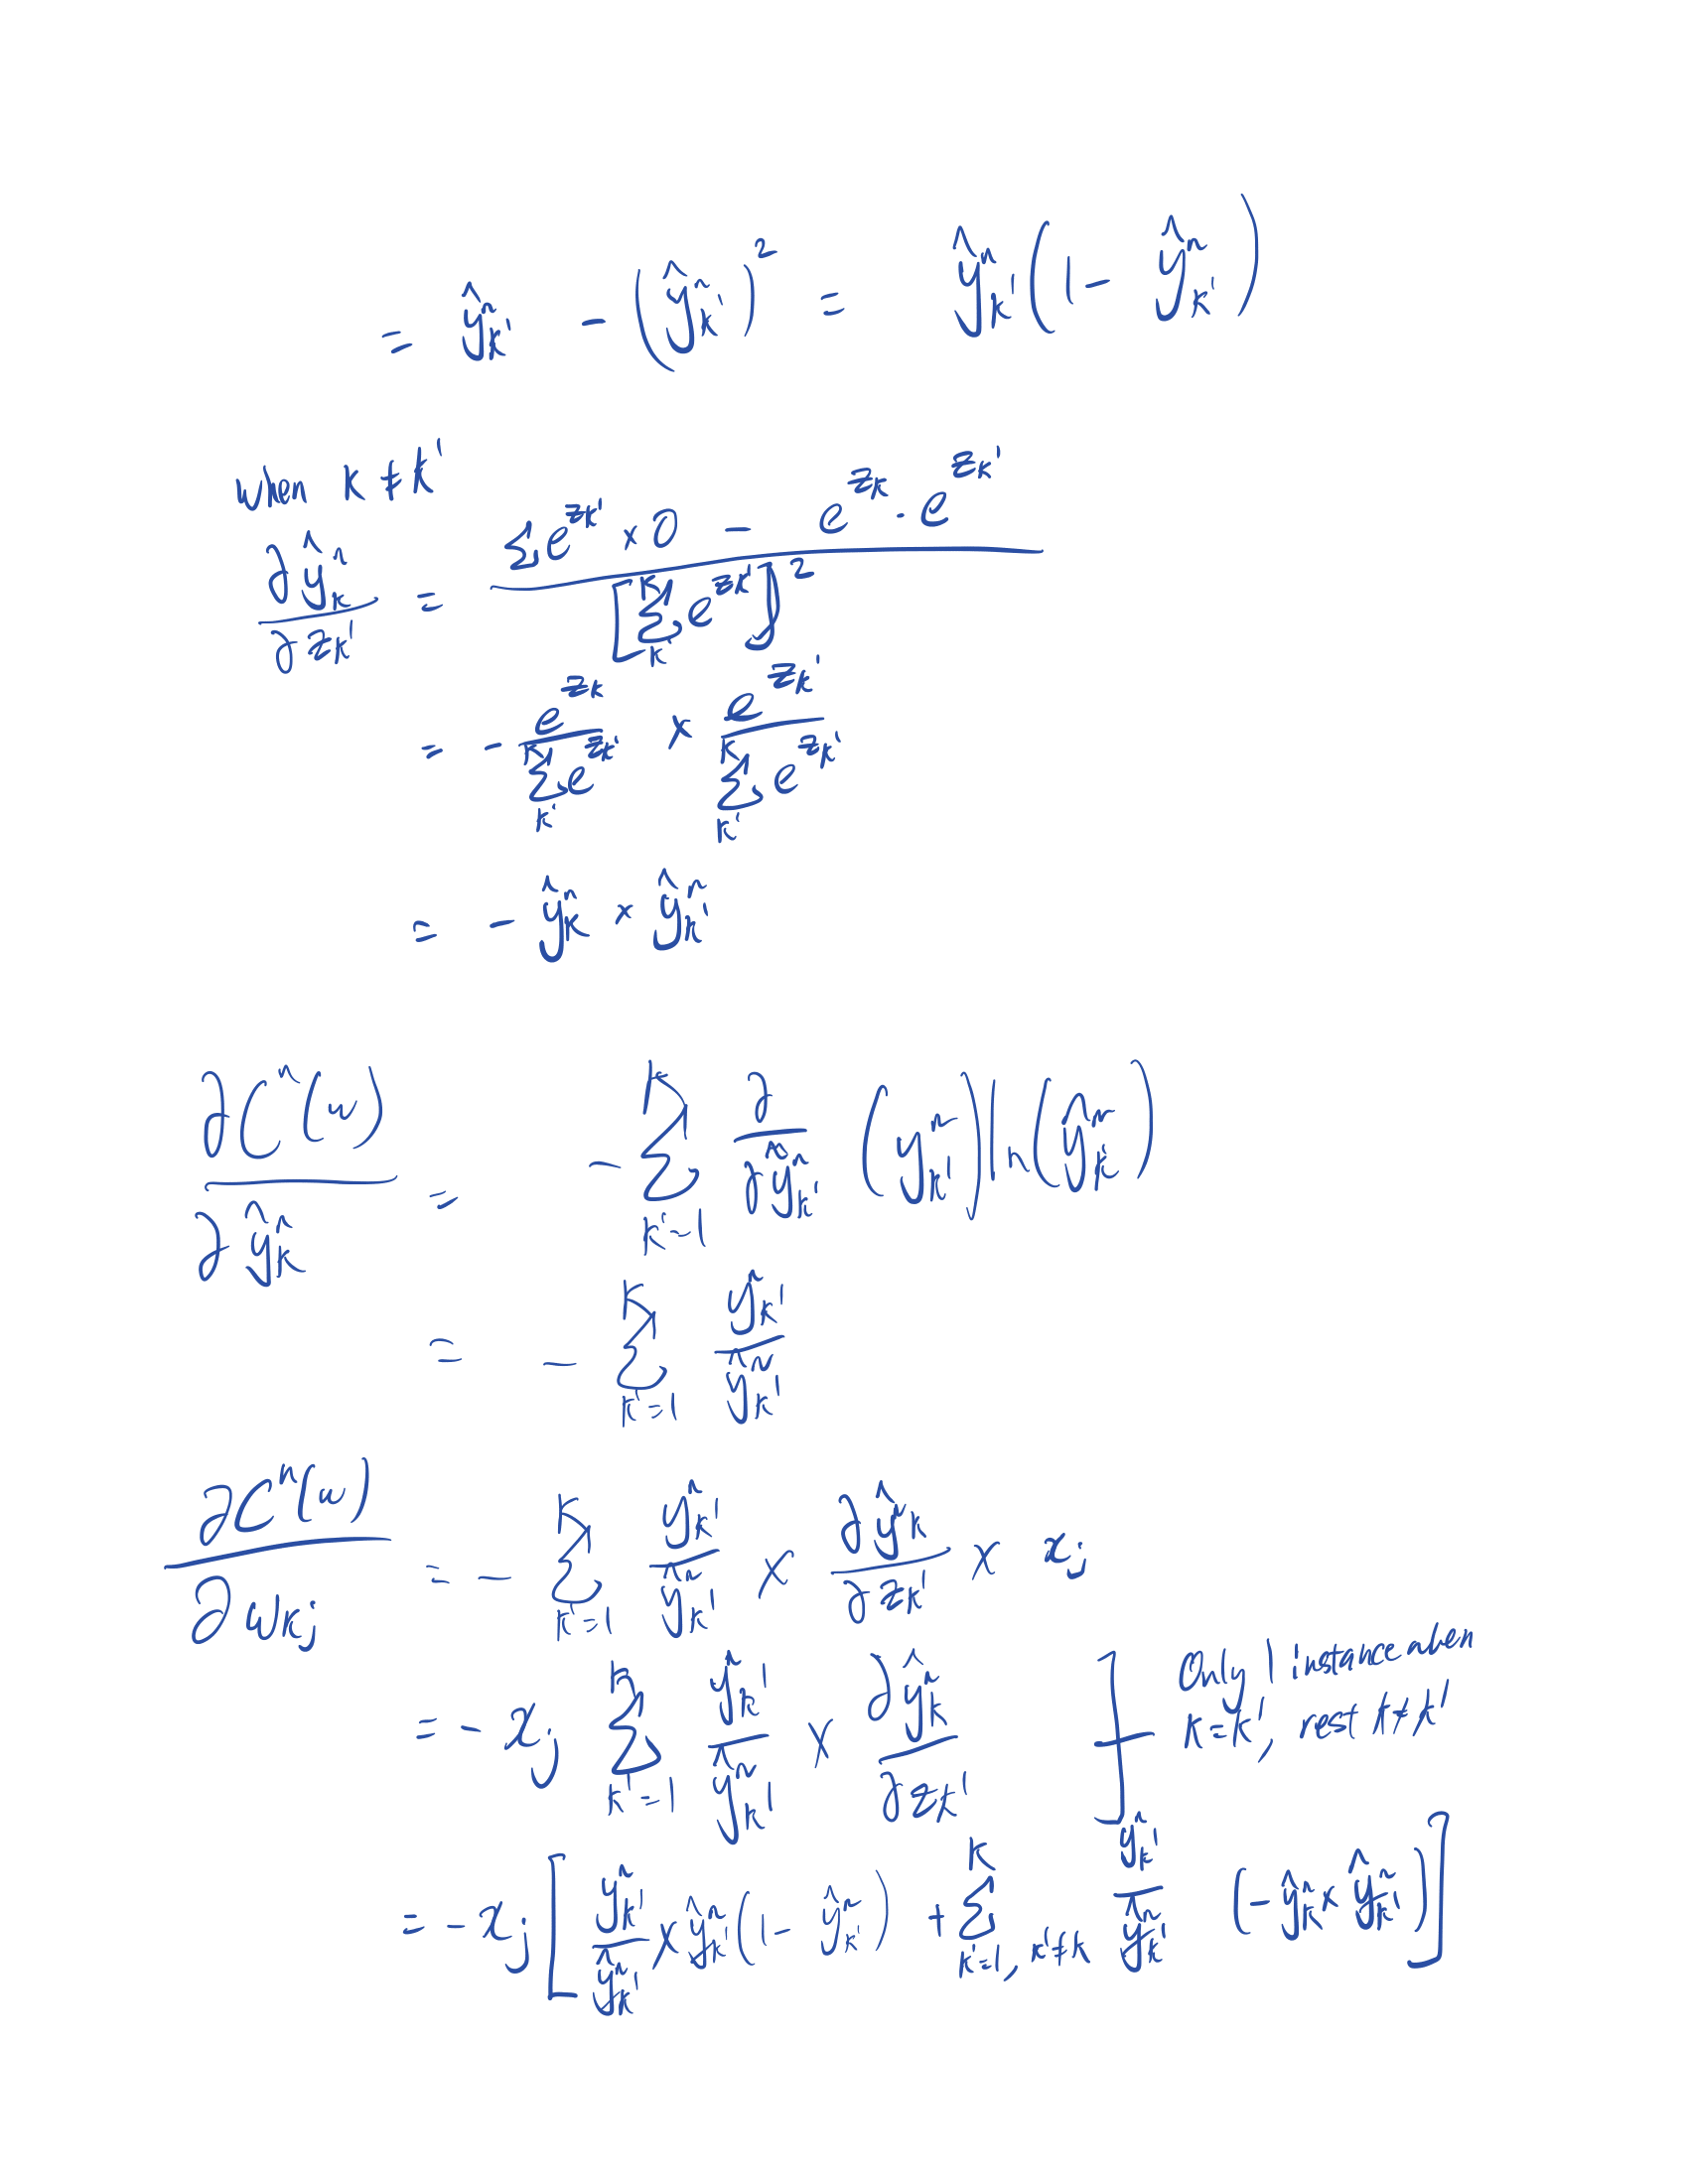 = ŷⁿ_k' - (ŷⁿ_k')² = ŷⁿ_k'(1 - ŷⁿ_k')
when k ≠ k'
∂ŷⁿ_k / ∂z_k' = (Σ e^{z_k'} × 0 - e^{z_k} · e^{z_k'}) / [Σ_{k'}^{K} e^{z_k'}]²
= - e^{z_k} / Σ_{k'}^{K} e^{z_k'} × e^{z_k'} / Σ_{k'}^{K} e^{z_k'}
= - ŷⁿ_k × ŷⁿ_k'
∂Cⁿ(w) / ∂ŷⁿ_k = - Σ_{k'=1}^{K} ∂/∂ŷⁿ_k' (yⁿ_k') ln(ŷⁿ_k')
= - Σ_{k'=1}^{K} yⁿ_k' / ŷⁿ_k'
∂Cⁿ(w) / ∂w_kj = - Σ_{k'=1}^{K} yⁿ_k' / ŷⁿ_k' × ∂ŷⁿ_k / ∂z_k' × x_j
= - x_j Σ_{k'=1}^{K} yⁿ_k' / ŷⁿ_k' × ∂ŷⁿ_k / ∂z_k' } Only 1 instance when
k = k', rest k ≠ k'
= - x_j [ yⁿ_k' / ŷⁿ_k' × ŷⁿ_k'(1 - ŷⁿ_k') + Σ_{k'=1, k'≠k}^{K} yⁿ_k' / ŷⁿ_k' (- ŷⁿ_k × ŷⁿ_k') ]